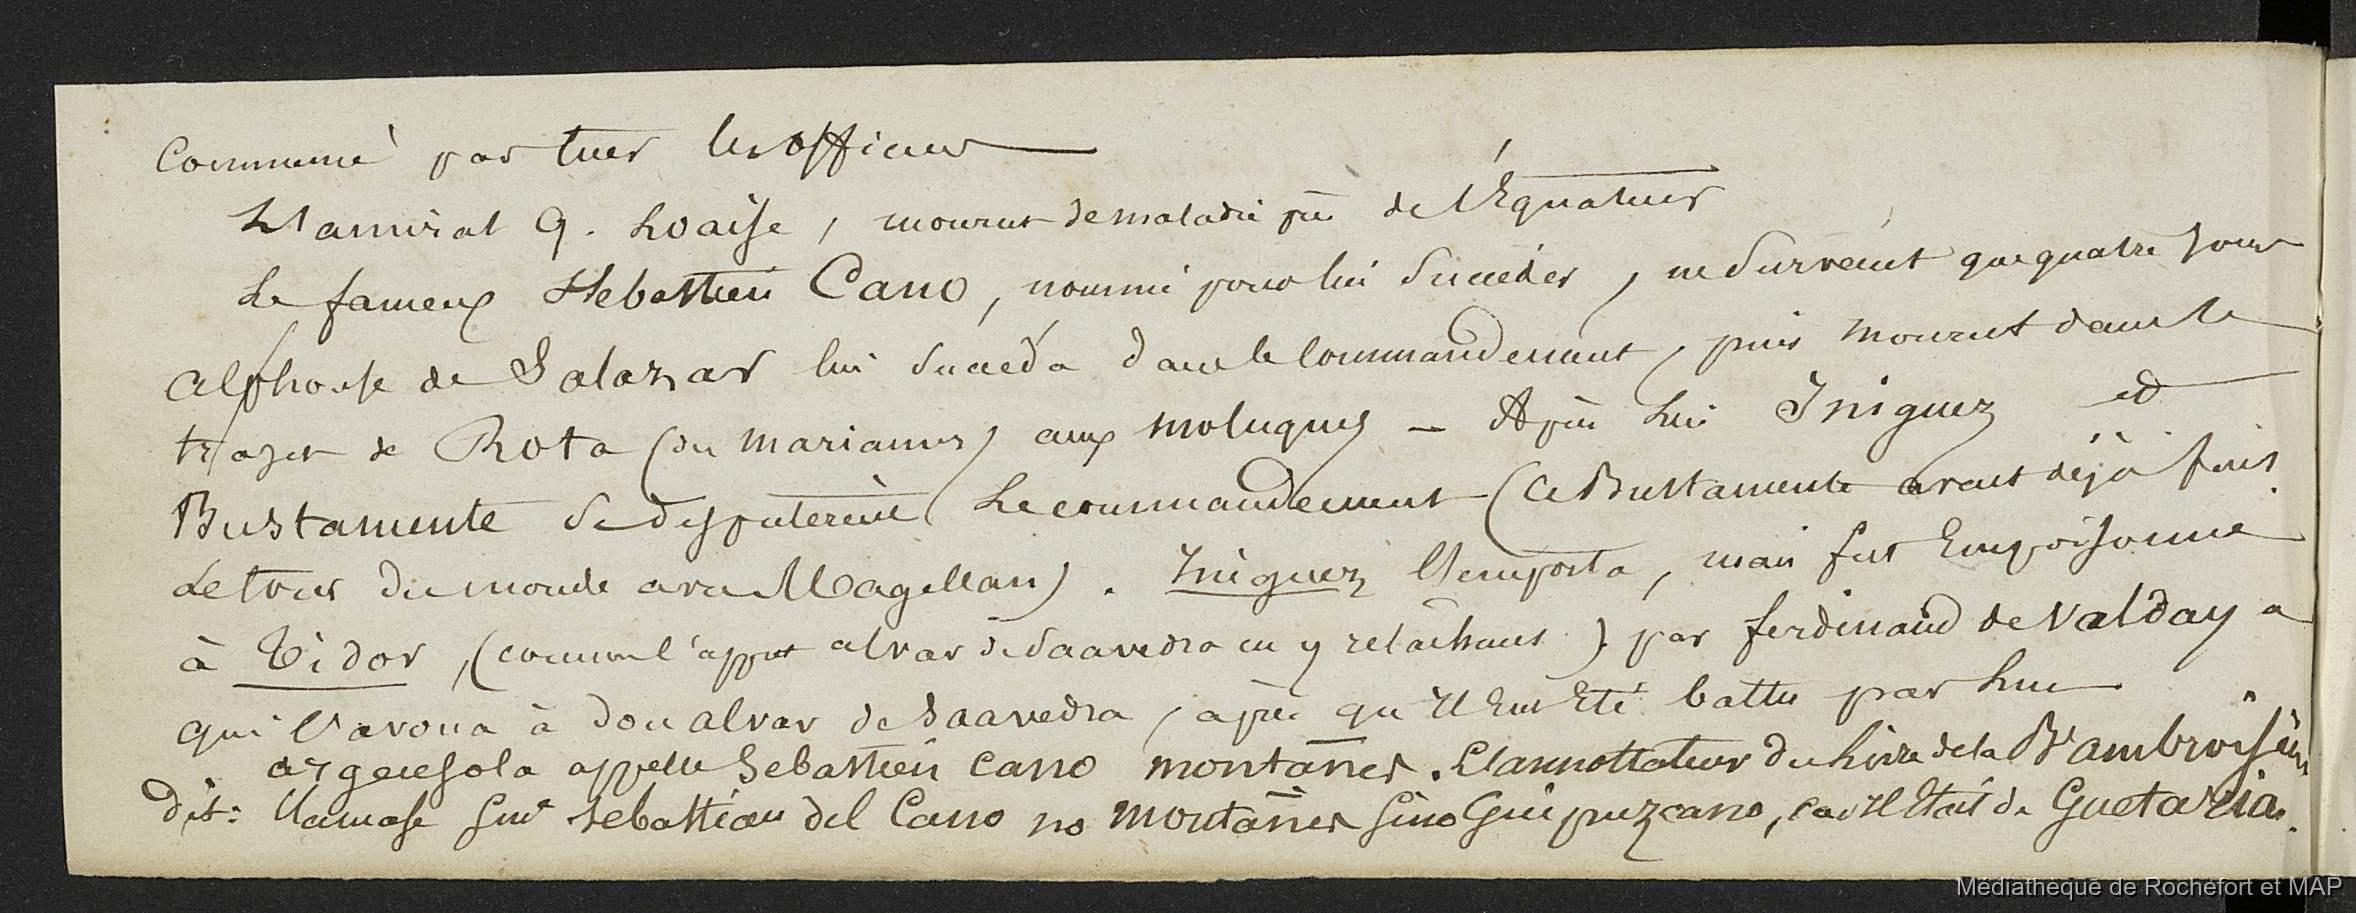 commencé par tuer les officiers
L'amiral G. Loaise, mourut de maladie près de l'Équateur
Le fameux Sébastien Cano, nommé pour lui succéder, ne survécut que quatre jours
Alphonse de Salazar lui succéda dans le commandement, puis mourut dans le
trajet de Rota (des mariannes) aux moluques — Après lui Iniguez et
Bustamente se disputèrent le commandement (ce Bustamente avait déjà fait
le tour du monde avec Magellan). Iniguez l'emporta, mais fut Empoisonné
à Tidor, (comme l'apprit alvar de Saavedra en y relachant) par ferdinand de Valdaya
qui l'avoua à don alvar de Saavedra, après qu'il eut Eté battu par lui
argensola appelle Sebastien cano montañes. L'annottateur du livre de la Bque ambroisienne
dit: llamase Juan sebastian del Cano no montañes sino Guipuzcano, car il Etait de Guetaria.
Médiathèque de Rochefort et MAP